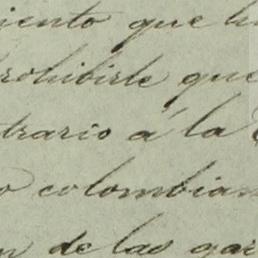 iento que h
rohibirle que
trario á la
o colombian
n de las gar